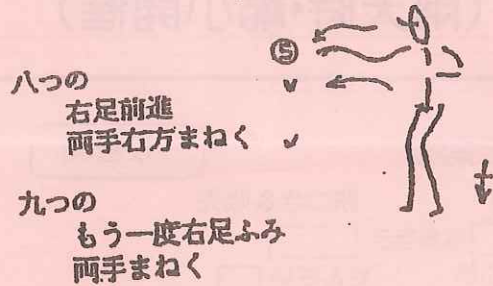 ⑤
八つの
右足前進
両手右方まねく
九つの
もう一度右足ふみ
両手まねく